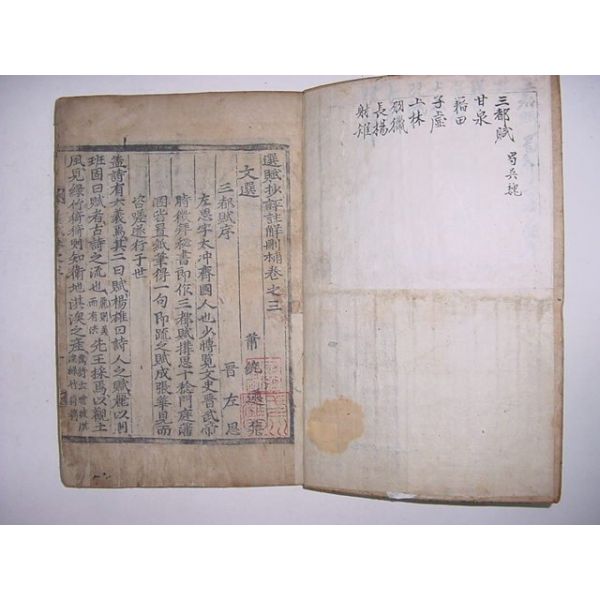 三都賦 蜀吳魏
甘泉
籍田
子虛
上林
羽獵
長楊
射雉
選賦抄評註解刪補卷之三
文選 蕭統選集
三都賦序 晉左思
左思字太冲齊國人也少博覽文史晉武帝
時徵爲秘書即作三都賦搆思十稔門庭藩
溷皆置紙筆得一句即疏之賦成張華見而
咨嗟遂行于世
盖詩有六義焉其二曰賦楊雄曰詩人之賦麗以則
班固曰賦者古詩之流也先王採焉以觀土
風見綠竹猗猗則知衛地淇澳之産